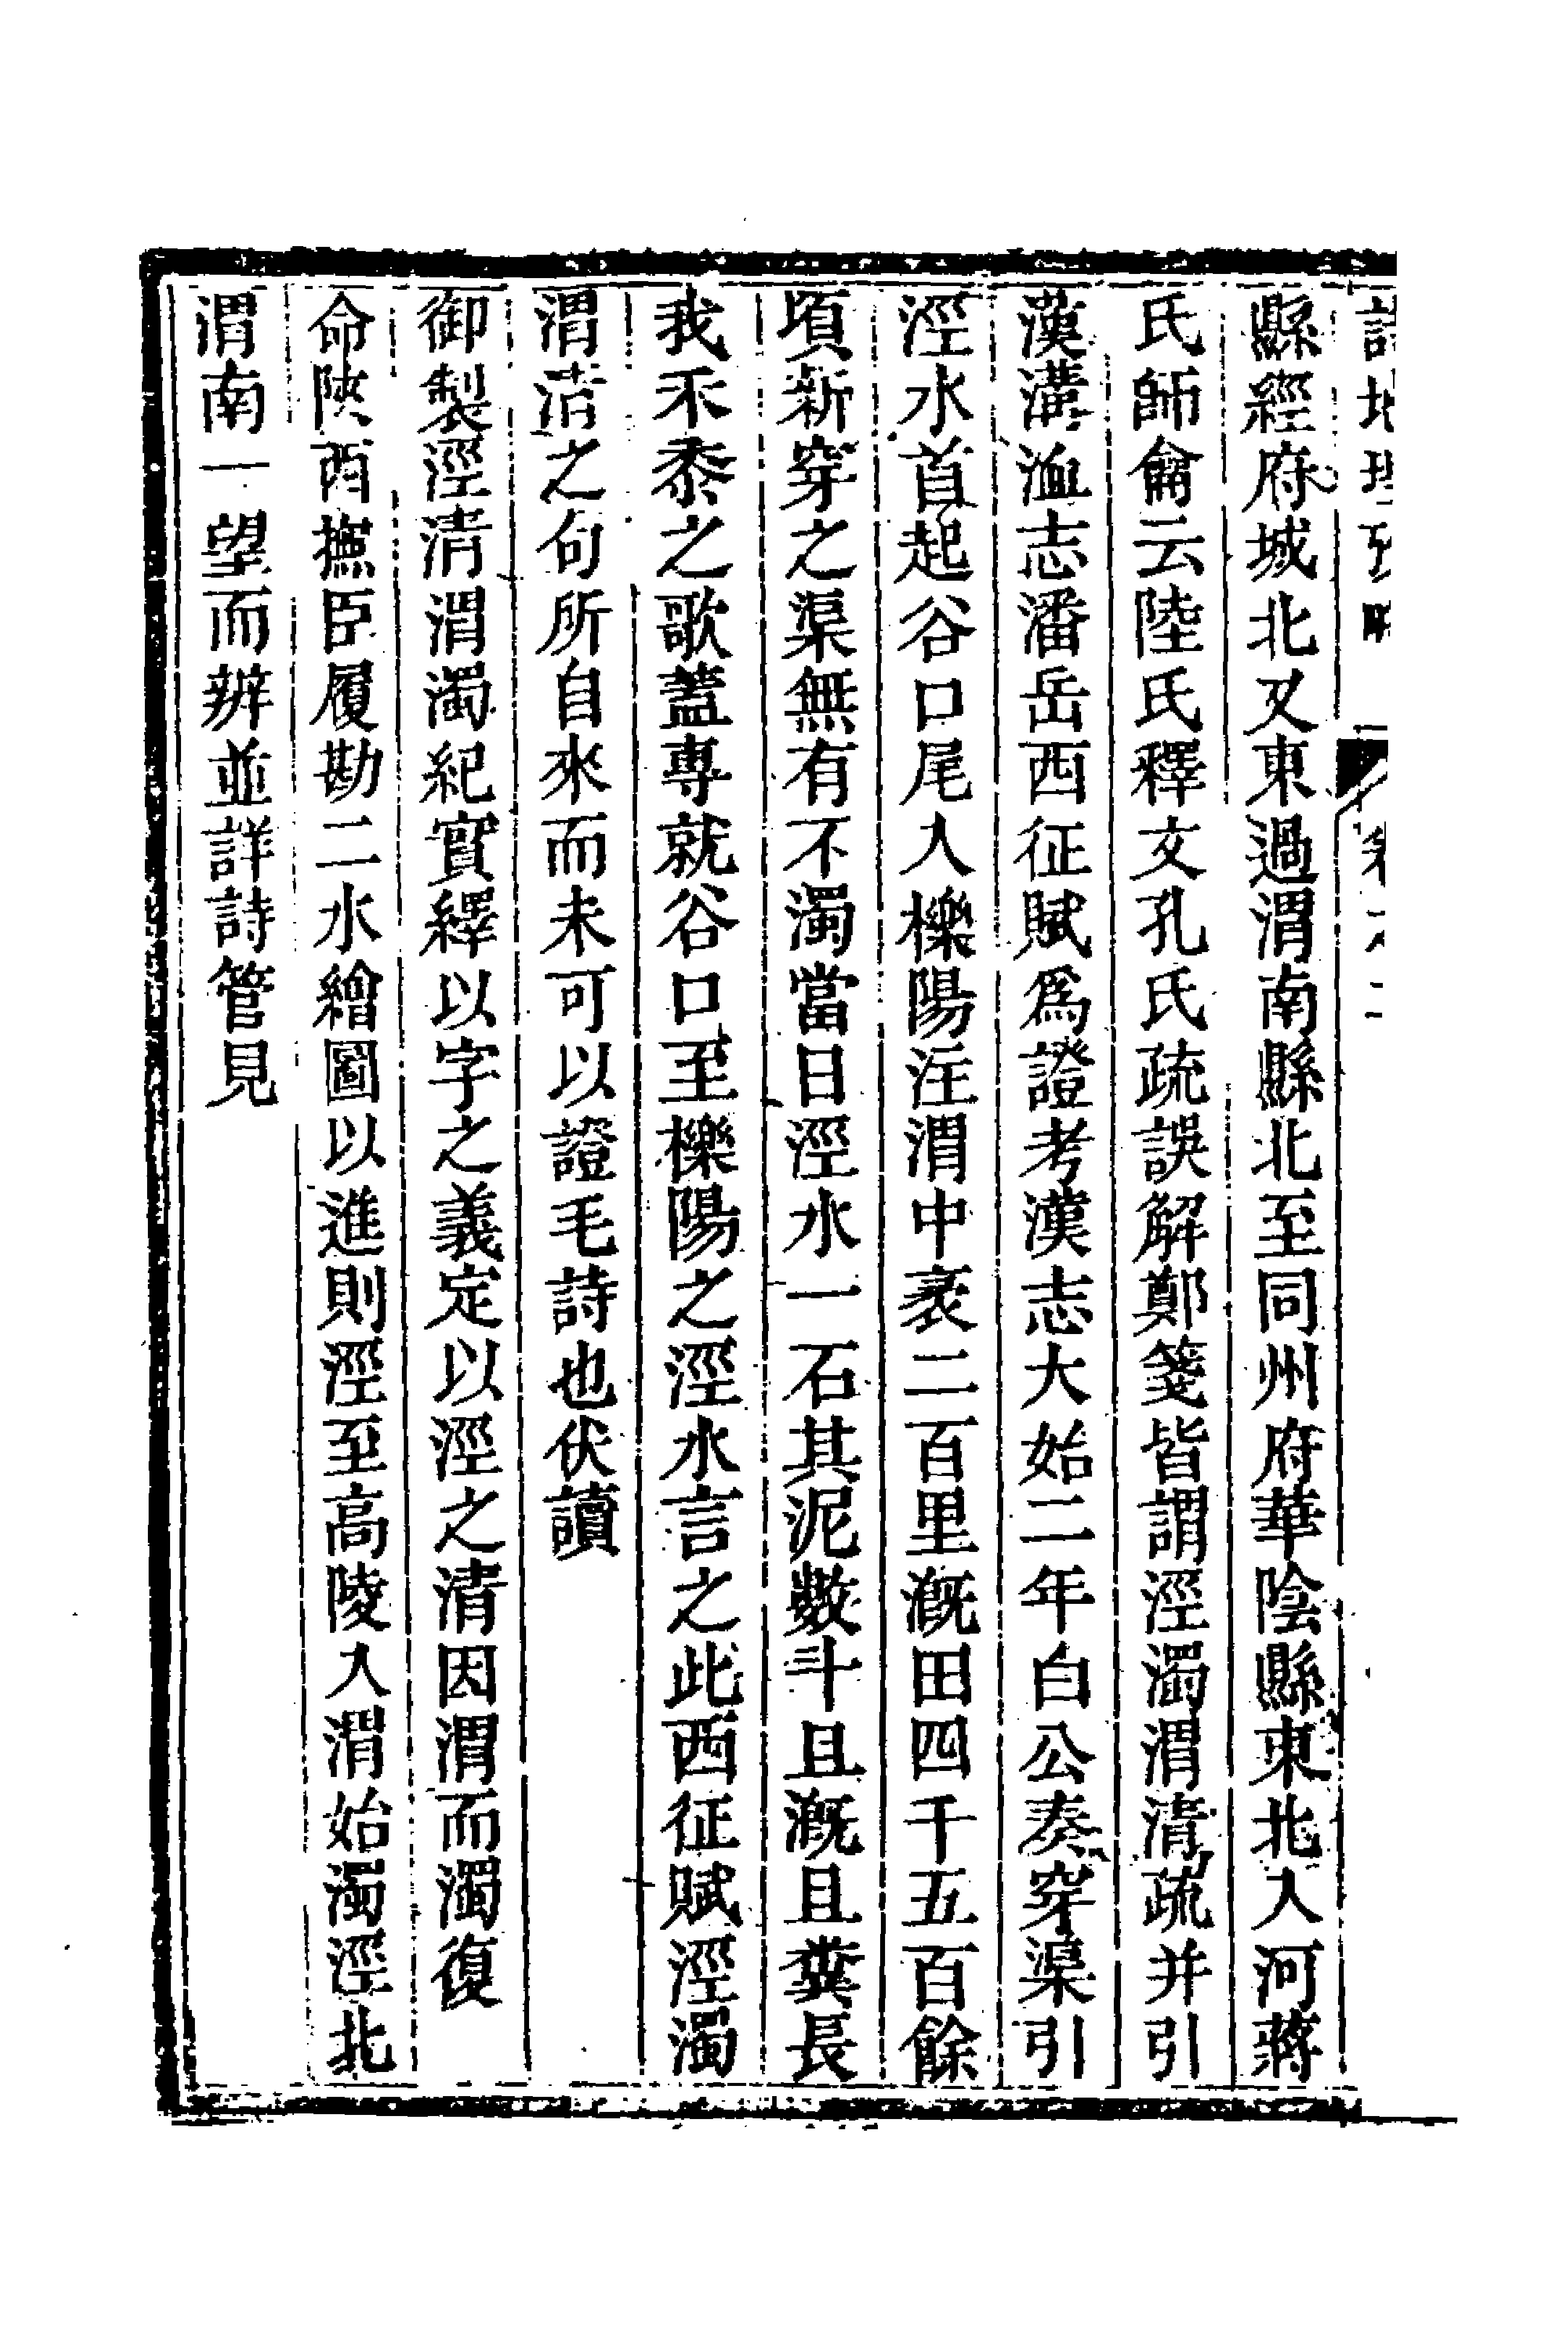 縣經府城北又東過渭南縣北至同州府華陰縣東北入河蔣
氏師爚云陸氏釋文孔氏疏誤解鄭箋皆謂涇濁渭清疏并引
漢溝洫志潘岳西征賦爲證考漢志大始二年白公奏穿渠引
涇水首起谷口尾入櫟陽注渭中袤二百里溉田四千五百餘
頃新穿之渠無有不濁當日涇水一石其泥數斗且溉且糞長
我禾黍之歌蓋專就谷口至櫟陽之涇水言之此西征賦涇濁
渭清之句所自來而未可以證毛詩也伏讀
御製涇清渭濁紀實繹以字之義定以涇之清因渭而濁復
命陝西撫臣履勘二水繪圖以進則涇至高陵入渭始濁涇北
渭南一望而辨並詳詩管見